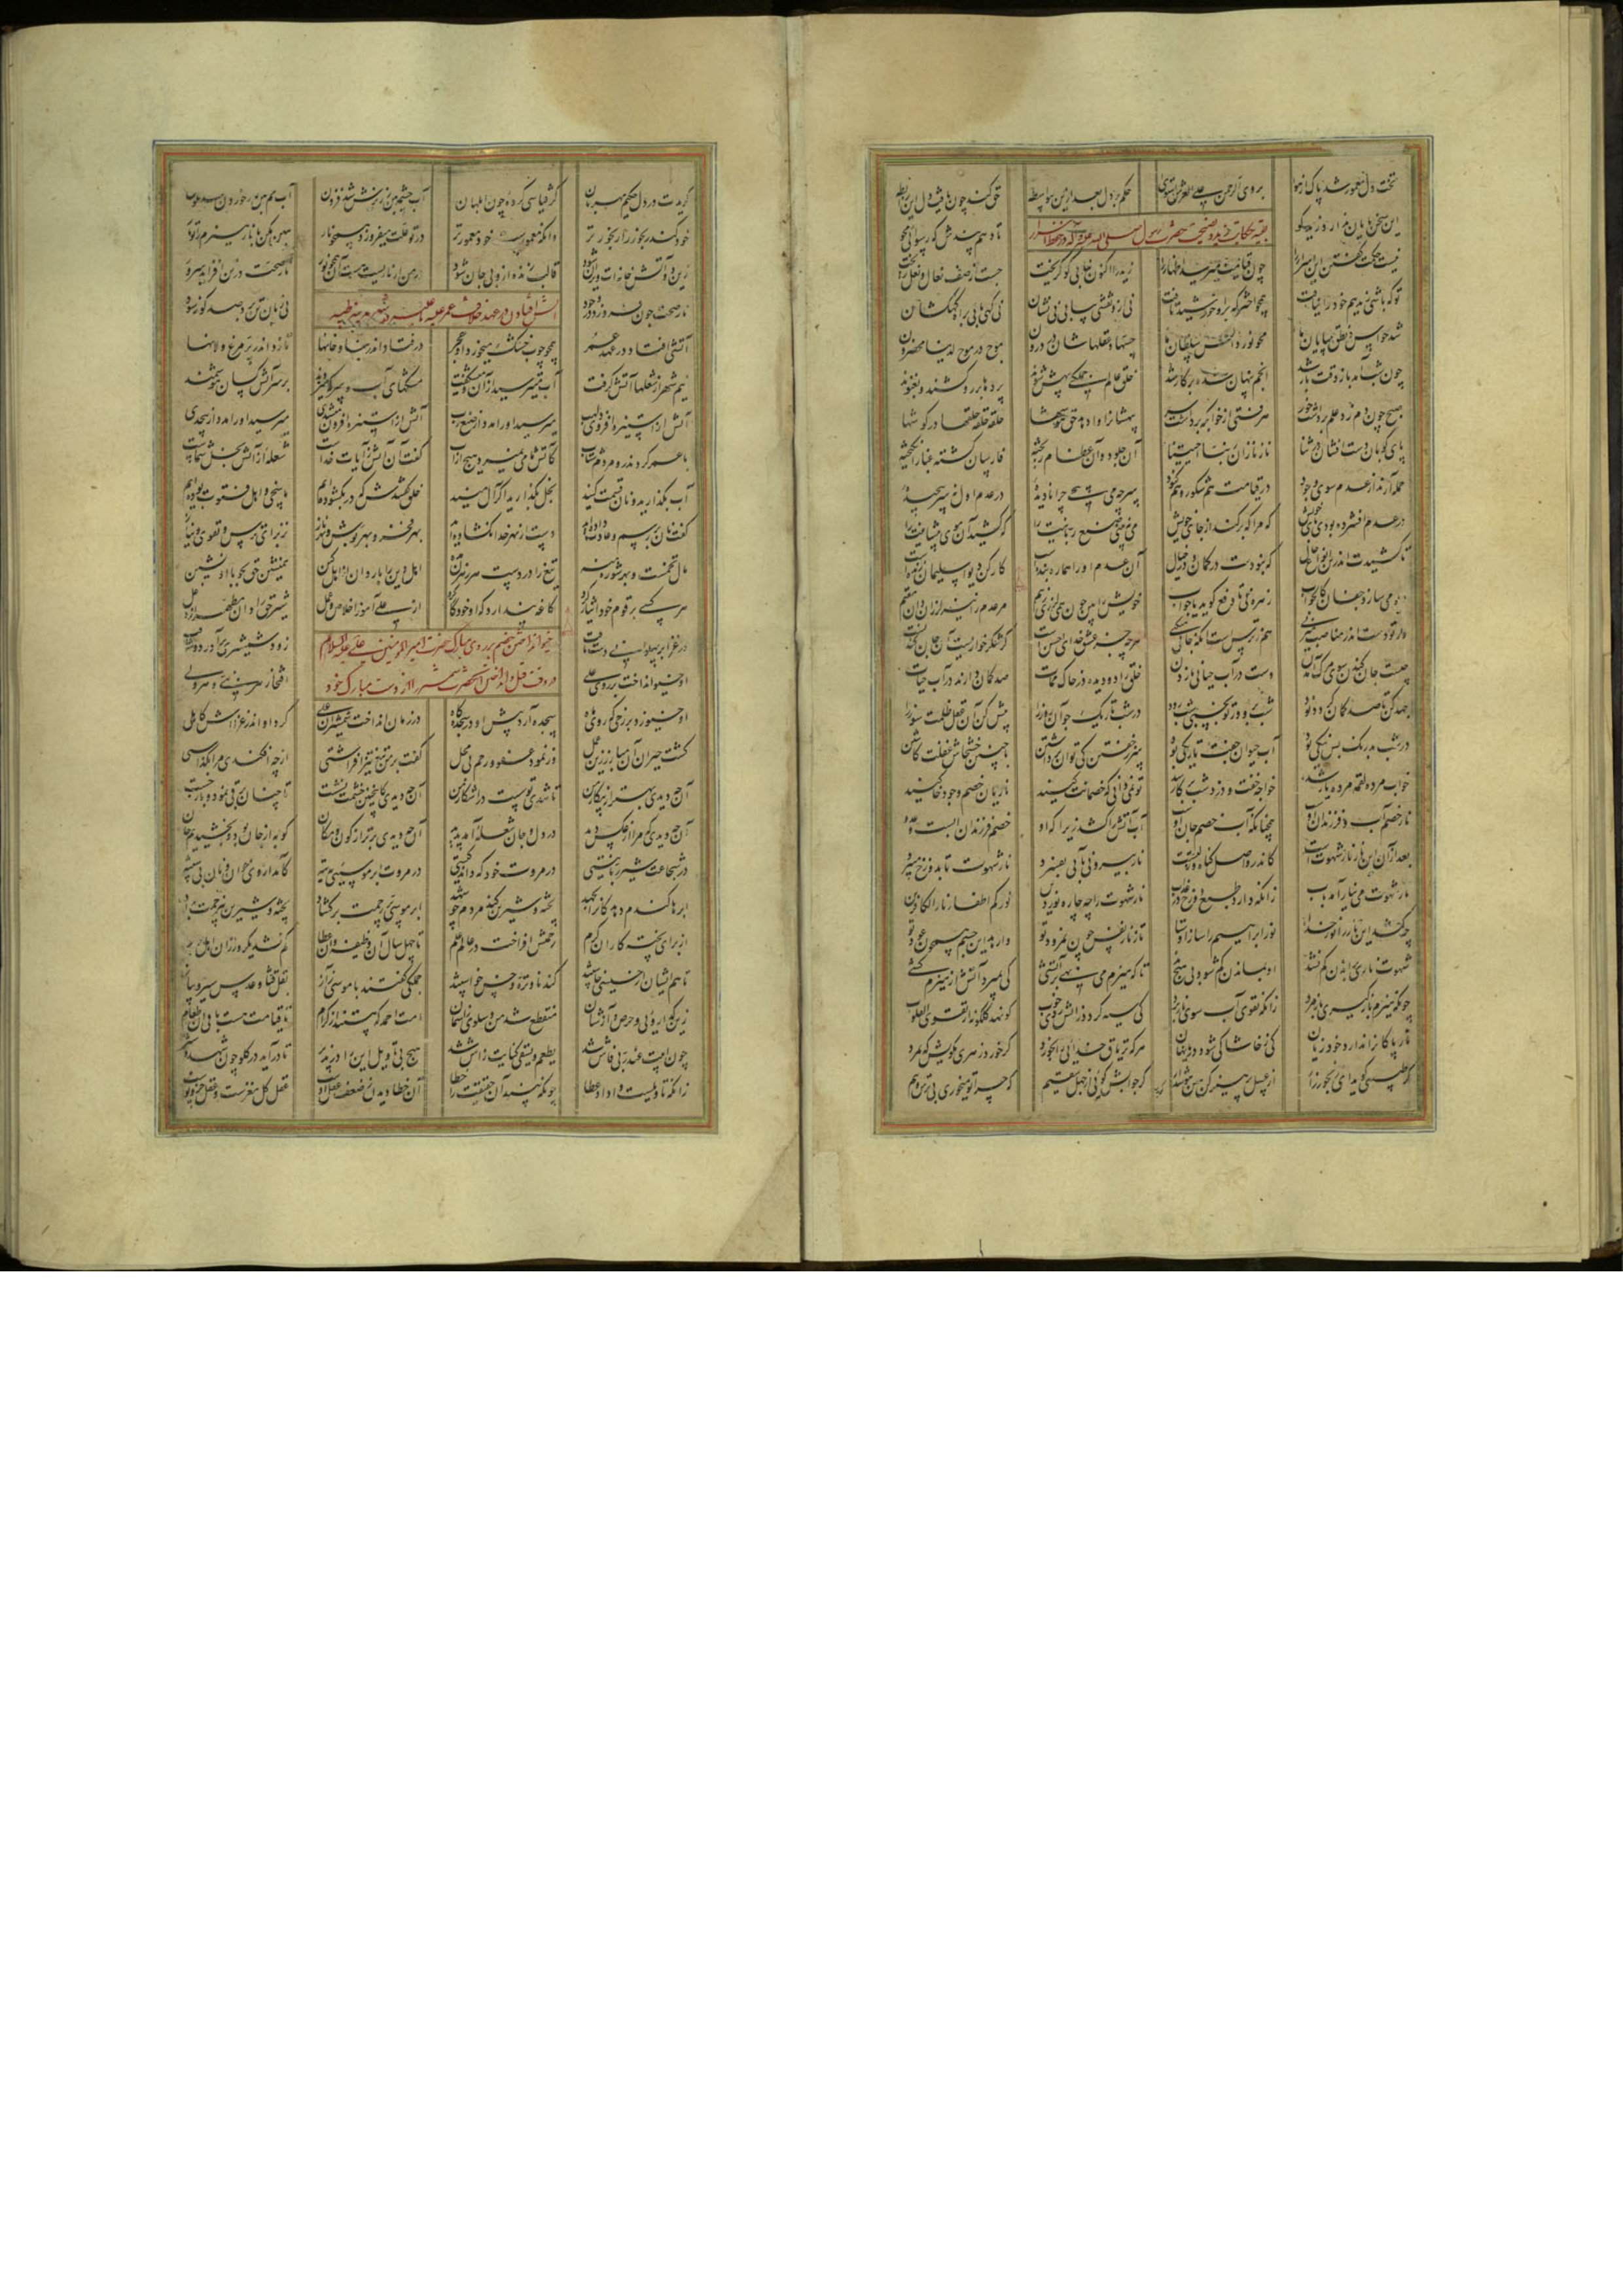 تخت دل معمور شد پاک از هوا بر وی الرحمن علی العرش استوی حکم بر دل بعد ازین بی واسطه حق کند چون یافت دل این رابطه
این سخن پایان ندارد زید کو تا دهم پندش که رسوایی مجو
بقیه حکایت زید و نصیحت حضرت رسول صلی الله علیه و آله
نیست حکمت گفتن این اسرار را چون قیامت میرسد اظهار را زید را اکنون نیابی کو گریخت جست از صف نعال و نعل ریخت
تو که باشی زید هم خود را نیافت همچو اختر که برو خورشید تافت نی ازو نقشی بیابی نی نشان نی کهی یابی براه کهکشان
شد حواس و نطق بی پایان ما محو نور دانش سلطان ما حسها و عقلهاشان در درون موج در موج لدینا محضرون
چون شب آمد باز وقت بار شد انجم پنهان شده بر کار شد خلق عالم جملگی بیهش شوند پردها بر رو کشند و بغنوند
صبح چون دم زد علم برداشت خور هر تنی از خوابگه برداشت سر بیهشانرا وا دهد حق هوشها حلقه حلقه حلقها در گوشها
پای کوبان دست افشان در ثنا ناز نازان ربنا احییتنا آن جلود و آن عظام ریخته فارسان گشته غبار انگیخته
حمله آرند از عدم سوی وجود در قیامت هم شکور و هم کنود سر چه می پیچی چرا نادیدهٔ در عدم اول نه سر پیچیدهٔ
در عدم افشرده بودی پای خویش که مرا که برکند از جای خویش می نبینی صنع ربانیت را که کشید آن موی پیشانیت را
تا کشیدت اندرین انواع حال که نبودت در گمان و در خیال آن عدم او را هماره بنده است کار کن دیوا سلیمان زنده است
دیو می سازد جفان کالجواب زهره نی تا دفع گوید یا جواب خویش را بین چون همی لرزی ز بیم مر عدم را نیز لرزان دان مقیم
ور تو دست اندر مناصب میزنی هم ز ترس است آنکه جانی میکنی هر چه جز عشق خدای احسن است گر شکرخواریست آن جان کندنست
چیست جان کندن سوی مرگ آمدن دست در آب حیاتی نازدن خلق را دو دیده در خاک ممات صد گمان دارند در آب حیات
جهد کن تا صد گمان گردد نود شب برو ور تو بخسپی شب رود در شب تاریک جو آن روز را پیش کن آن عقل ظلمت سوز را
در شب بدرنگ بس نیکی بود آب حیوان جفت تاریکی بود سر ز خفتن کی توان برداشتن با چنین خشخاش غفلت کاشتن
خواب مرده لقمه مرده یار شد خواجه خفت و دزد شب بر کار شد تو نمی دانی که خصمانت کیند ناریان خصم وجود خاکیند
نار خصم آب و فرزندان او همچنانکه آب خصم جان او آب آتش را کشد زیرا که او خصم فرزندان آبست و عدو
بعد از آن این نار نار شهوت است کاندرو اصل گناه و زلتست نار بیرونی بآبی بفسرد نار شهوت تا بدوزخ میبرد
نار شهوت می نیارامد بآب زانکه دارد طبع دوزخ در عذاب نار شهوت را چه چاره نور دین نورکم اطفاء نار الکافرین
چه کشد این نار را نور خدا نور ابراهیم را ساز اوستا تا ز نار نفس چون نمرود تو وا رهد این جسم همچون عود تو
شهوت ناری براندن کم نشد او بماندن کم شود بی هیچ بد تا که هیزم می نهی بر آتشی کی بمیرد آتش از هیزم کشی
چونکه هیزم باز گیری نار مرد زانکه تقوی آب سوی نار برد کی سیه گردد ز آتش روی خوب کو نهد گلگونه از تقوی القلوب
نار پاکان را ندارد خود زیان کی ز خاشاکی شود دریا نهان هر که تریاق خدایی را بخورد گر خورد زهری مگویش کو بمرد
گر طبیبی گوید ای رنجور زار از عسل پرهیز کن هین هوش دار گر جوابش گویی از جهل سقیم که چرا تو میخوری بی ترس و بیم
گویدت در دل حکیم مهربان گر قیاسی کردهٔ چون ابلهان آب چشمه بین ز ریزش شد فزون آب خم بین
خود کند رنجور را رنجورتر وانکه معمورست خود معمورتر در تو علت میفروزد همچو نار هین مکن با نار هیزم را تو یار
زین دو آتش خانه ات ویران شود قالب زنده ازو بی جان شود در من ار ناریست هست آن همچو نور نار صحت در تن افزاید سرور
نار صحت چون فروزد در وجود نی زیان تن برد صد گونه سود
آتش افتادن در عهد خلافت عمر علیه
آتشی افتاد در عهد عمر همچو چوب خشک میخورد او حجر در فتاد اندر بنا و خانها تا زد اندر پر مرغ و لانها
نیم شهر از شعلها آتش گرفت آب میترسید ازان و میشگفت مشکهای آب و سرکه میزدند بر سر آتش کسان هوشمند
آتش از استیزه افزودی لهب میرسید او را مدد از صنع رب آتش از استیزه افزون میشدی میرسید او را مدد از بیحدی
با عمر کردند رو مردم شتاب کاتش ما می نمیرد هیچ از آب گفت آن آتش ز آیات خداست شعلهٔ از آتش بخل شماست
آب بگذارید و نان قسمت کنید بخل بگذارید اگر آل منید خلق گفتندش که در بگشوده ایم ما سخی و اهل فتوت بوده ایم
گفت نان بر رسم و عادت داده اید دست از بهر خدا نگشاده اید بهر فخر و بهر بوش و بهر ناز نز برای ترس و تقوی و نیاز
مال تخمست و بهر شوره منه تیغ را در دست هر رهزن مده اهل دین را باز دان از اهل کین همنشین حق بجو با او نشین
هر کسی بر قوم خود ایثار کرد کاغه پندارد که او خود کار کرد از علی آموز اخلاص عمل شیر حق را دان مطهر از دغل
در غزا بر پهلوانی دست یافت زود شمشیری بر آورد و شتافت
خیو انداختن خصم بر روی مبارک حضرت امیر المومنین علی علیه السلام
و انداختن آنحضرت شمشیر را از دست مبارک خود
او خیو انداخت بر روی علی افتخار هر نبی و هر ولی
او خیو زد بر رخی که روی ماه سجده آرد پیش او در سجده گاه در زمان انداخت شمشیر آن علی کرد او اندر غزا اش کاهلی
گشت حیران آن مبارز زین عمل وز نمودن عفو و رحم بی محل گفت بر من تیغ تیز افراشتی از چه افکندی مرا بگذاشتی
آن چه دیدی بهتر از پیکار من تا شدی تو سست در اشکار من آن چه دیدی که چنین خشمت نشست تا چنان برقی نمود و باز جست
آن چه دیدی که مرا زان عکس دید در دل و جان شعلهٔ آمد پدید آن چه دیدی برتر از کون و مکان کو به از جان بود و بخشیدیم جان
در شجاعت شیر ربانیستی در مروت خود که داند کیستی در مروت ابر موسیی بتیه کامد از وی خوان و نان بی شبیه
ابرها گندم دهد کانرا بجهد پخته و شیرین کند مردم چو شهد ابر موسی پر رحمت بر گشاد پخته و شیرین بی زحمت بداد
از برای پخته کاران کرم رحمتش افراخت در عالم علم تا چهل سال آن وظیفه و آن عطا کم نشد یکروز از آن اهل رجا
تا هم ایشان از خسیسی خاستند گندنا و تره و خس خواستند جملگی گفتند با موسی ز آز بقل و قثا و عدس سیر و پیاز
زین گدارویی و حرص و آزشان منقطع شد من و سلوی ز آسمان امت احمد که هستند از کرام تا قیامت هست باقی آن طعام
چون ابیت عند ربی فاش شد یطعم و یسقی کنایت ز آش شد هیچ بی تاویل این را در پذیر تا در آید در گلو چون شهد و شیر
زانکه تاویلست وا داد عطا چونکه بیند آن حقیقت را خطا آن خطا دیدن ز ضعف عقل اوست عقل کل مغزست و عقل جزو پوست